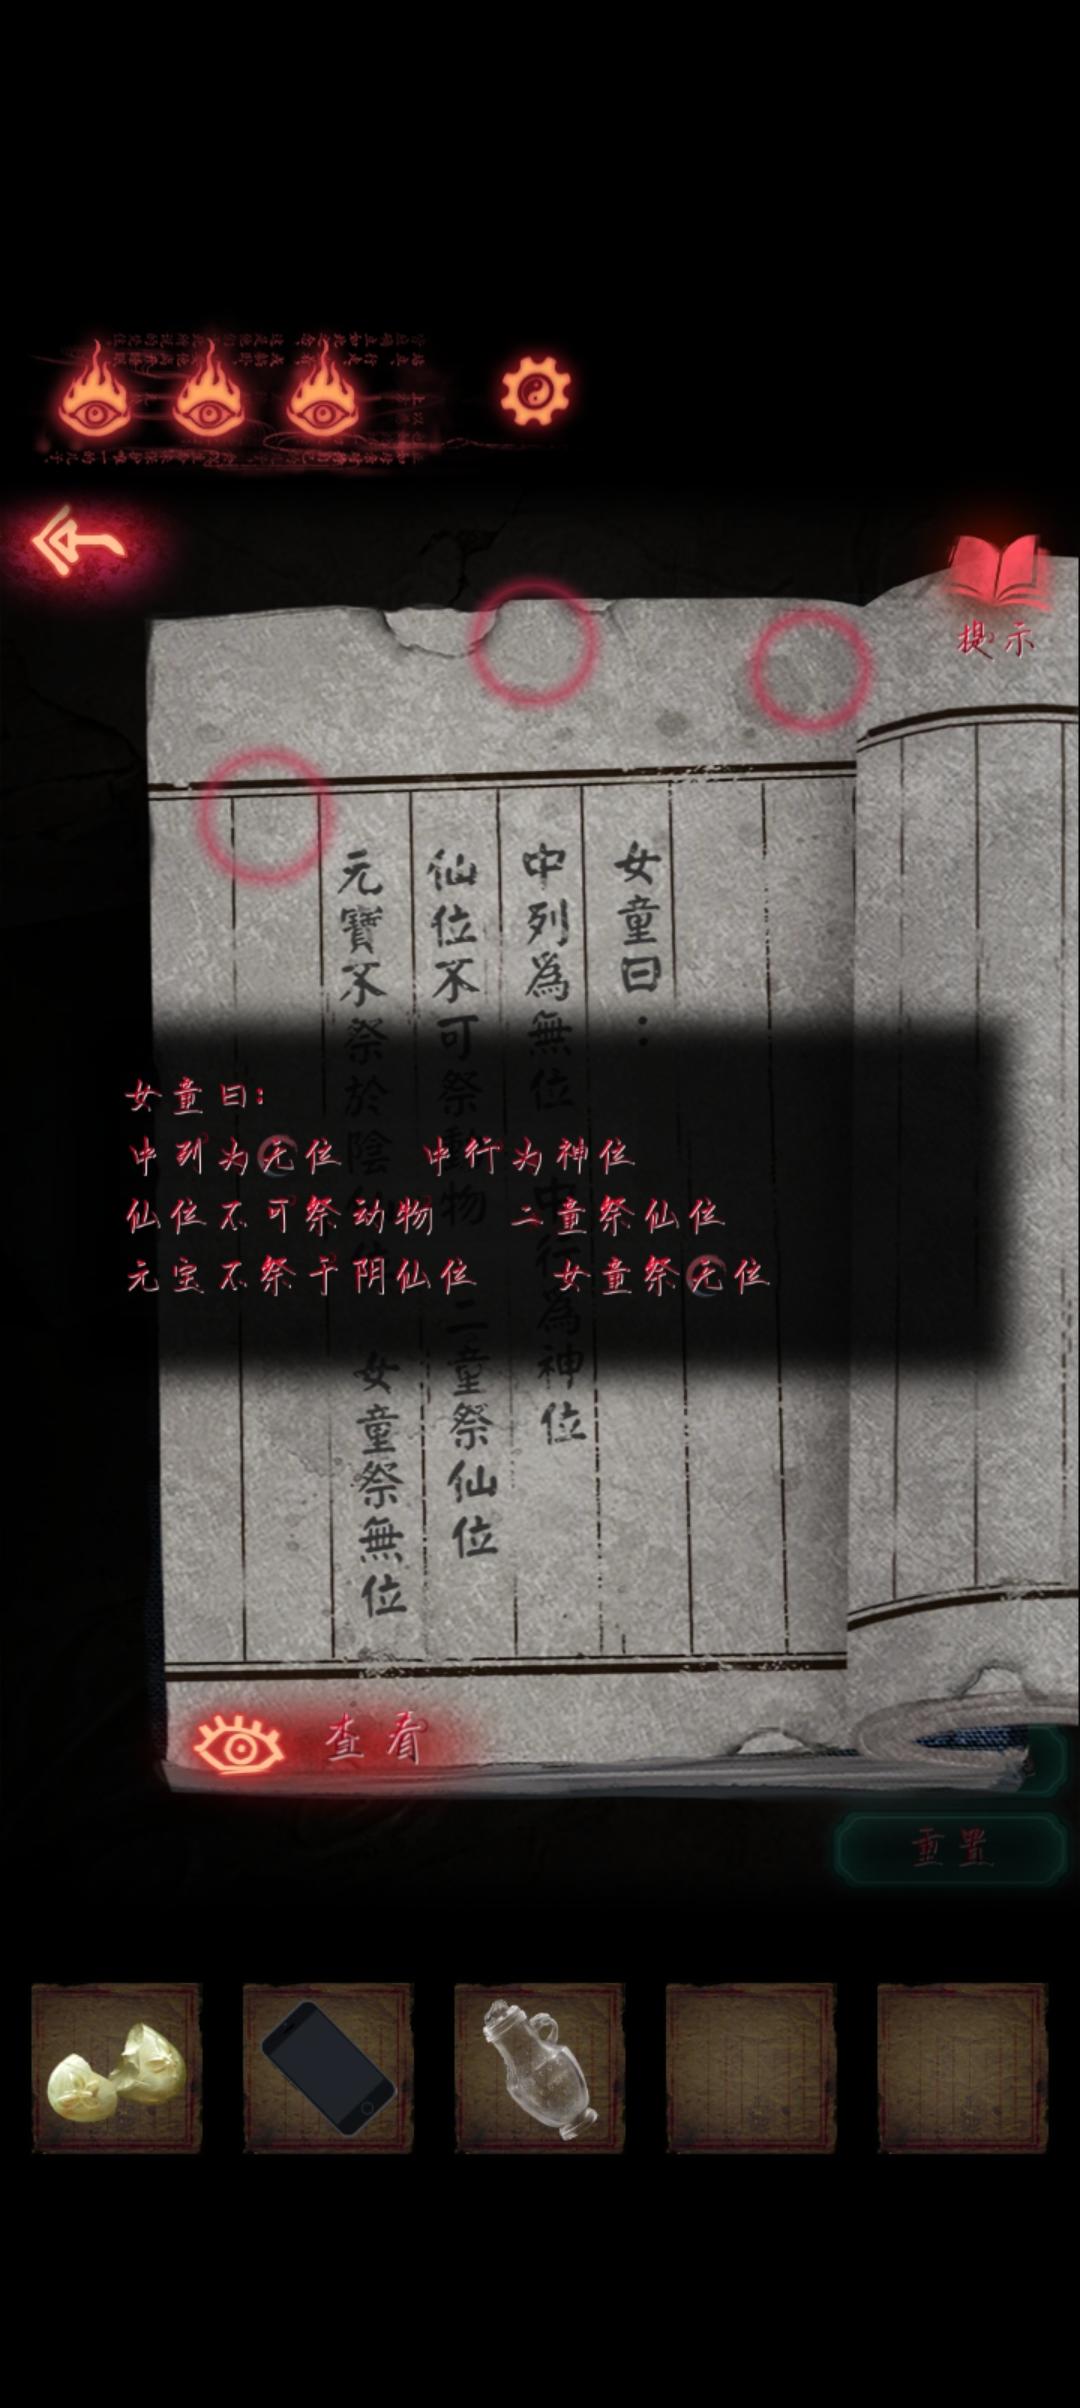 提示
女童曰：
中列為無位 中行為神位
仙位不可祭動物 二童祭仙位
元寶不祭於陰仙位 女童祭無位
女童曰：
中列为无位 中行为神位
仙位不可祭动物 二童祭仙位
元宝不祭于阴仙位 女童祭无位
查看
重置